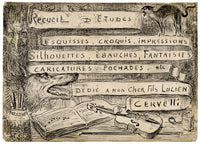 RECUEIL D'ETUDES
ESQUISSES, CROQUIS, IMPRESSIONS
SILHOUETTES, EBAUCHES, FANTAISIES
CARICATURES, POCHADES, etc
DEDIÉ A MON CHER FILS LUCIEN
CERVELLI